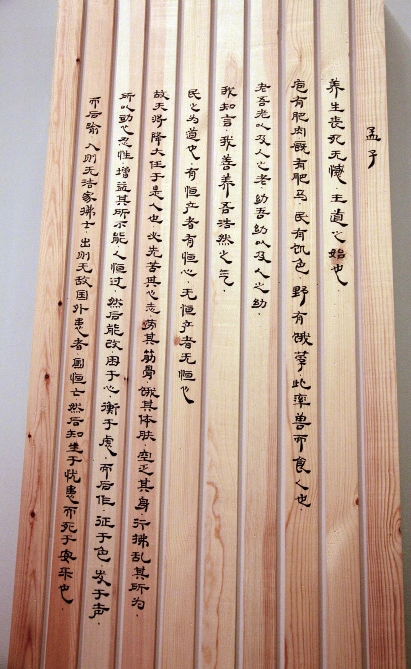 孟子
养生丧死无憾·王道之始也·
庖有肥肉·厩有肥马·民有饥色·野有饿莩·此率兽而食人也·
老吾老以及人之老·幼吾幼以及人之幼·
我知言·我善养吾浩然之气·
民之为道也·有恒产者有恒心·无恒产者无恒心
故天将降大任于是人也·必先苦其心志·劳其筋骨·饿其体肤·空乏其身·行拂乱其所为·
所以动心忍性·增益其所不能·人恒过·然后能改·困于心·衡于虑·而后作·征于色·发于声·
而后喻·入则无法家拂士·出则无敌国外患者·国恒亡·然后知生于忧患而死于安乐也·